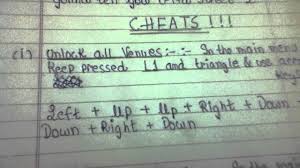 tell your
CHEATS !!!
(i) Unlock all Venues :-:- In the main men
Keep pressed L1 and triangle & use
Left + Up + Up + Right + Down
Down + Right + Down